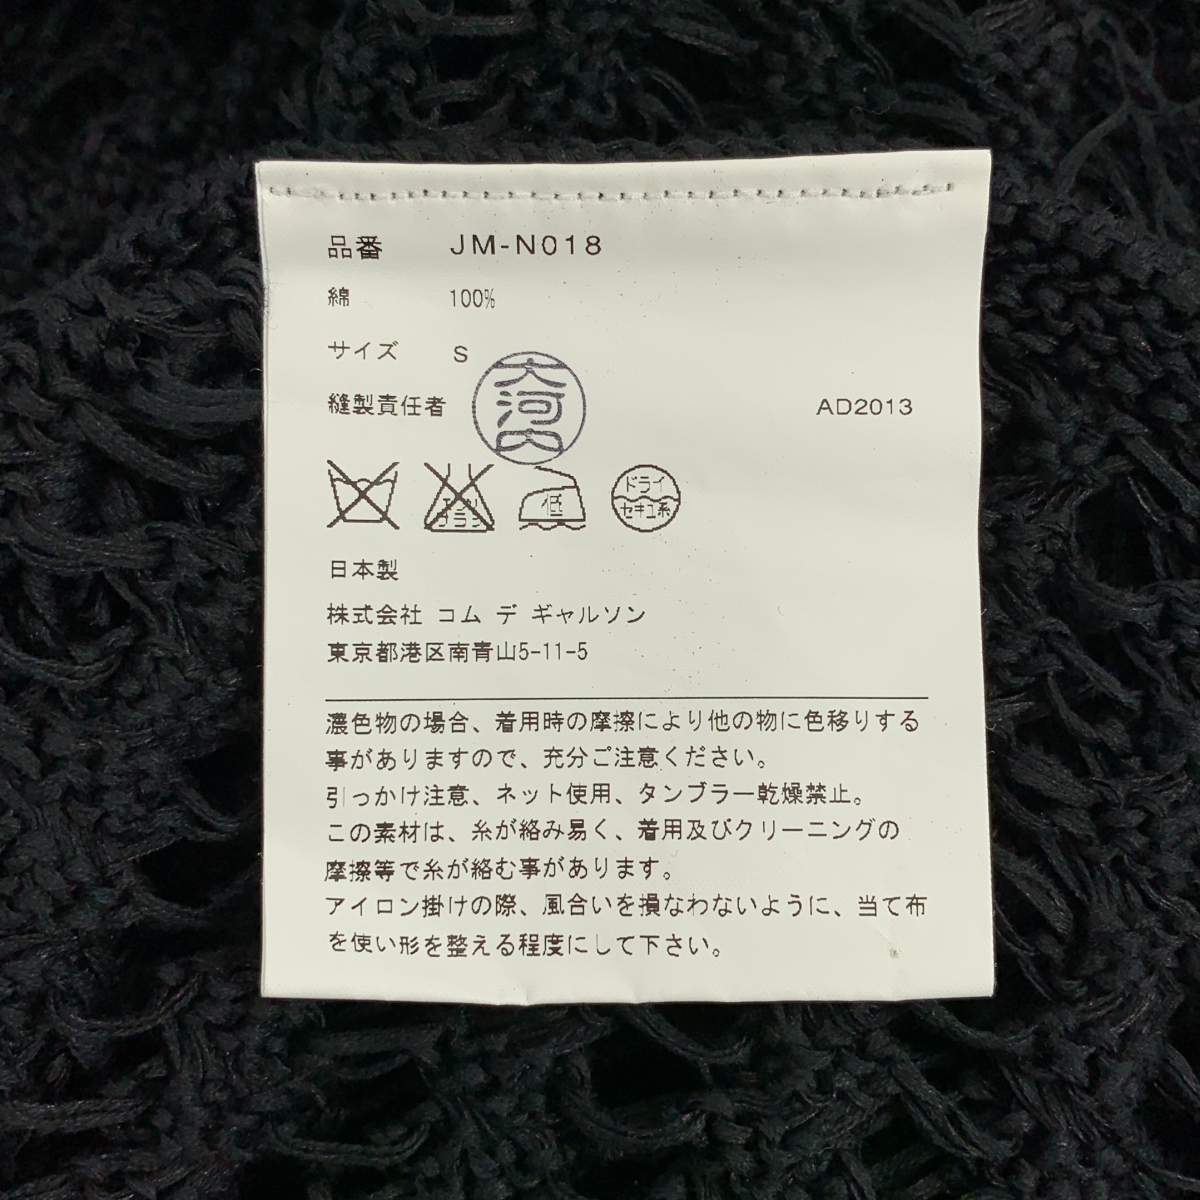 品番 JM-N018
綿 100%
サイズ S
縫製責任者 大河内 AD2013
エンソ サラシ 低 ドライ セキユ系
日本製
株式会社 コム デ ギャルソン
東京都港区南青山5-11-5
濃色物の場合、着用時の摩擦により他の物に色移りする
事がありますので、充分ご注意ください。
引っかけ注意、ネット使用、タンブラー乾燥禁止。
この素材は、糸が絡み易く、着用及びクリーニングの
摩擦等で糸が絡む事があります。
アイロン掛けの際、風合いを損なわないように、当て布
を使い形を整える程度にして下さい。